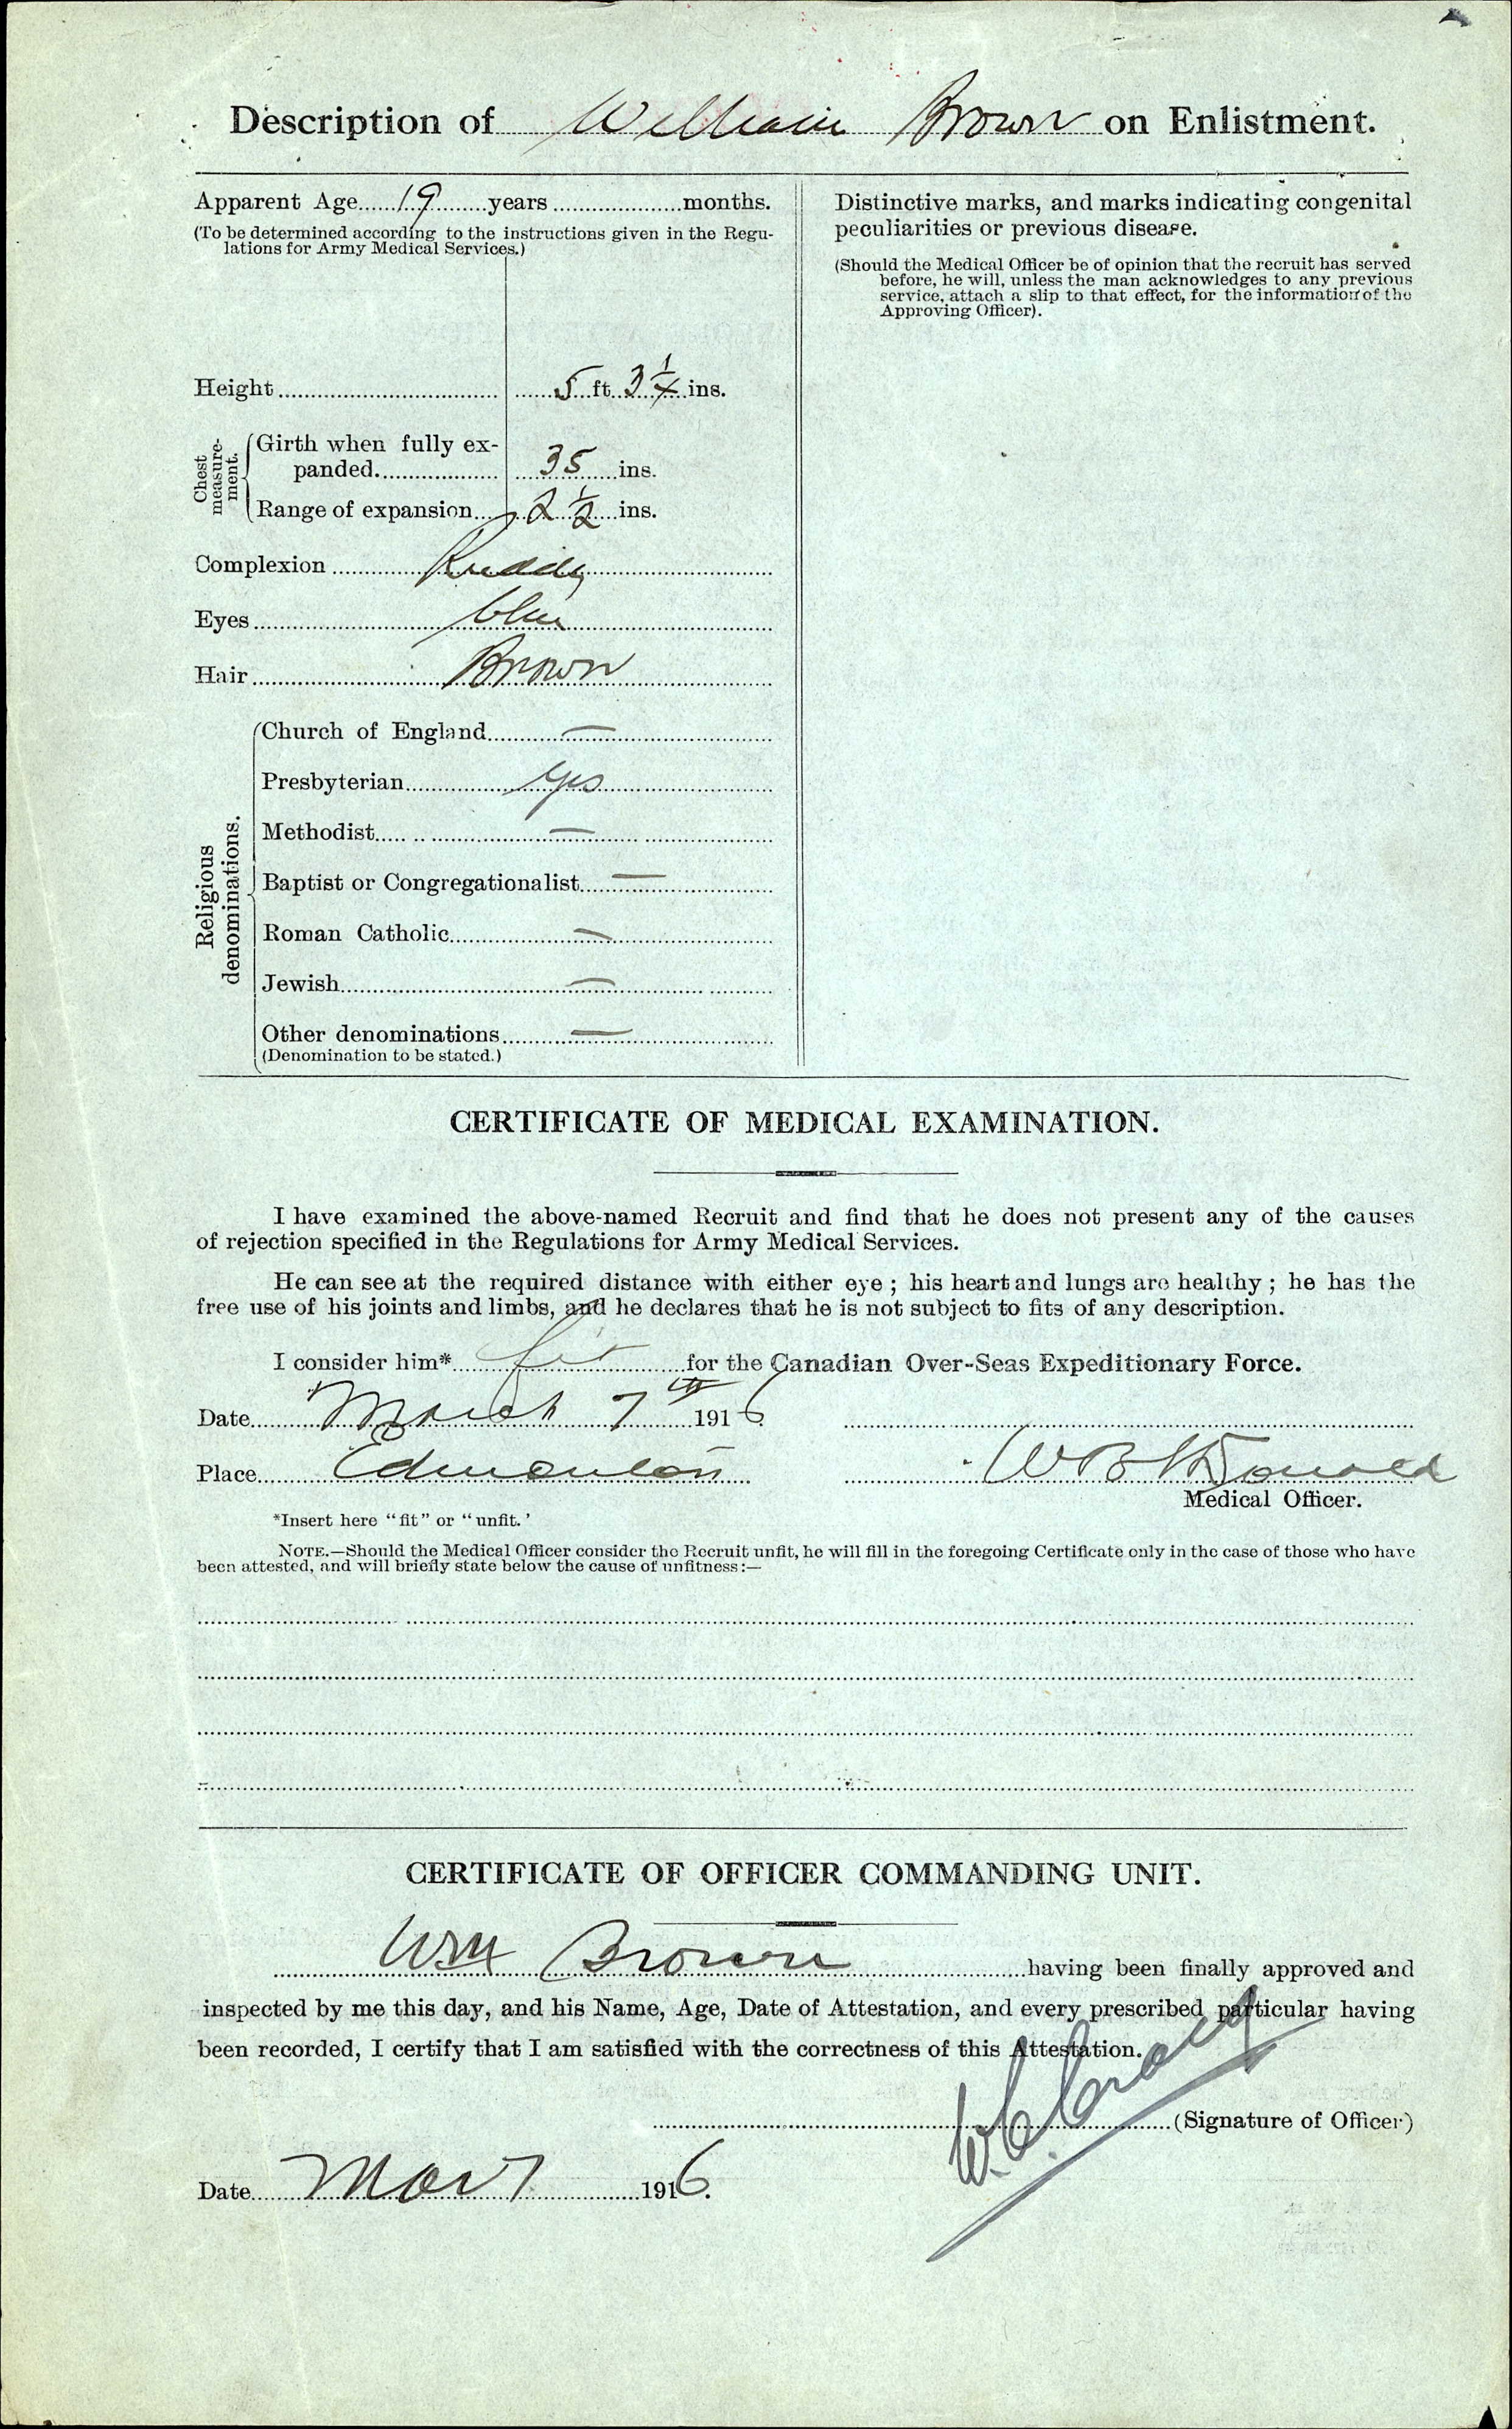 Description of William Brown on Enlistment.
Apparent Age 19 years months.
(To be determined according to the instructions given in the Regu-
lations for Army Medical Services.)
Height 5 ft. 3 1/4 ins.
Chest measure-ment.
Girth when fully ex-
panded 35 ins.
Range of expansion 2 1/2 ins.
Complexion Ruddy
Eyes blue
Hair Brown
Religious denominations.
Church of England —
Presbyterian yes
Methodist —
Baptist or Congregationalist —
Roman Catholic —
Jewish —
Other denominations —
(Denomination to be stated.)
Distinctive marks, and marks indicating congenital
peculiarities or previous disease.
(Should the Medical Officer be of opinion that the recruit has served
before, he will, unless the man acknowledges to any previous
service, attach a slip to that effect, for the information of the
Approving Officer).
CERTIFICATE OF MEDICAL EXAMINATION.
I have examined the above-named Recruit and find that he does not present any of the causes
of rejection specified in the Regulations for Army Medical Services.
He can see at the required distance with either eye ; his heart and lungs are healthy ; he has the
free use of his joints and limbs, and he declares that he is not subject to fits of any description.
I consider him* fit for the Canadian Over-Seas Expeditionary Force.
Date March 7th 1916
Place Edmonton
W B McDonald
Medical Officer.
*Insert here "fit" or "unfit.'
NOTE.—Should the Medical Officer consider the Recruit unfit, he will fill in the foregoing Certificate only in the case of those who have
been attested, and will briefly state below the cause of unfitness:—
CERTIFICATE OF OFFICER COMMANDING UNIT.
Wm Brown having been finally approved and
inspected by me this day, and his Name, Age, Date of Attestation, and every prescribed particular having
been recorded, I certify that I am satisfied with the correctness of this Attestation.
(Signature of Officer)
Date Mar 7 1916.